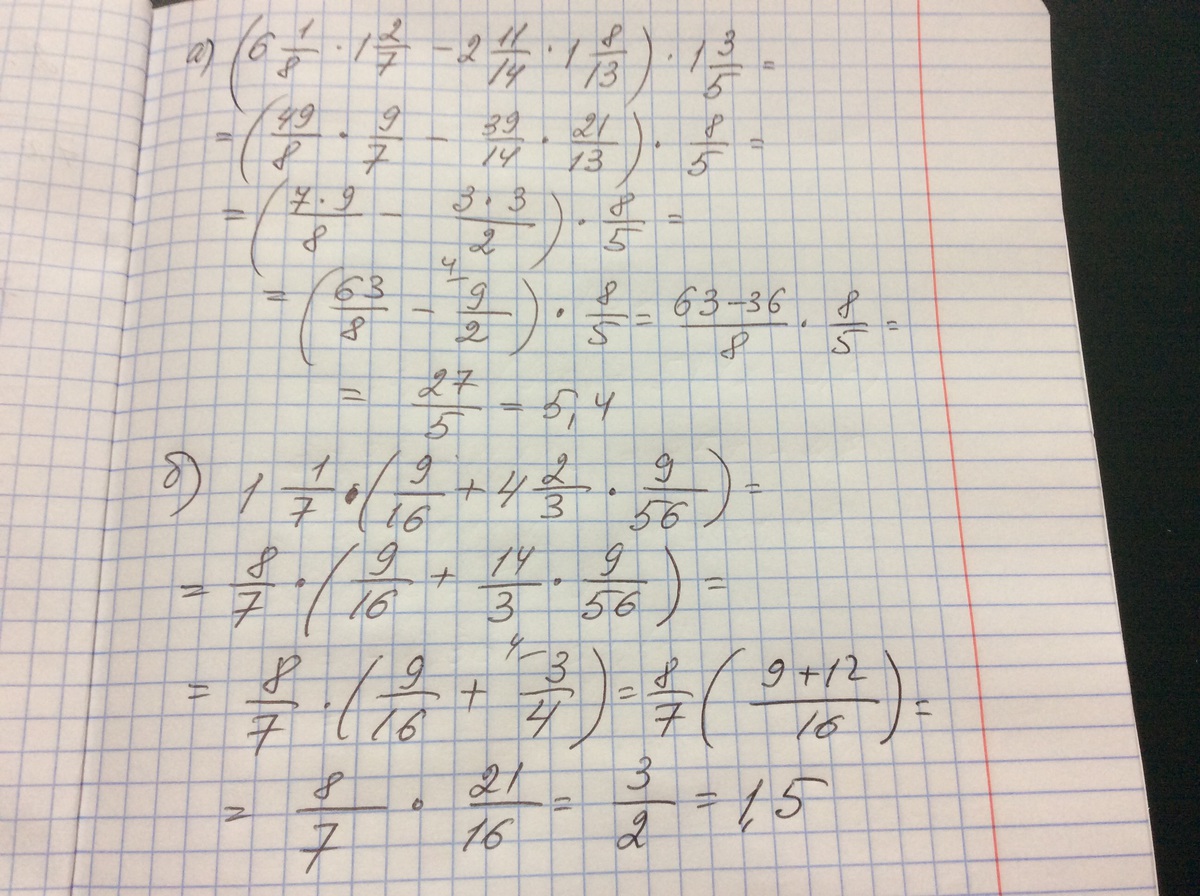 а) (6 1/8 · 1 2/7 − 2 11/14 · 1 8/13) · 1 3/5 =
= (49/8 · 9/7 − 39/14 · 21/13) · 8/5 =
= (7·9/8 − 3·3/2) · 8/5 =
= (63/8 − 4− 9/2) · 8/5 = 63−36/8 · 8/5 =
= 27/5 = 5,4
б) 1 1/7 · (9/16 + 4 2/3 · 9/56) =
= 8/7 · (9/16 + 14/3 · 9/56) =
= 8/7 · (9/16 + 4− 3/4) = 8/7 (9+12/16) =
= 8/7 · 21/16 = 3/2 = 1,5